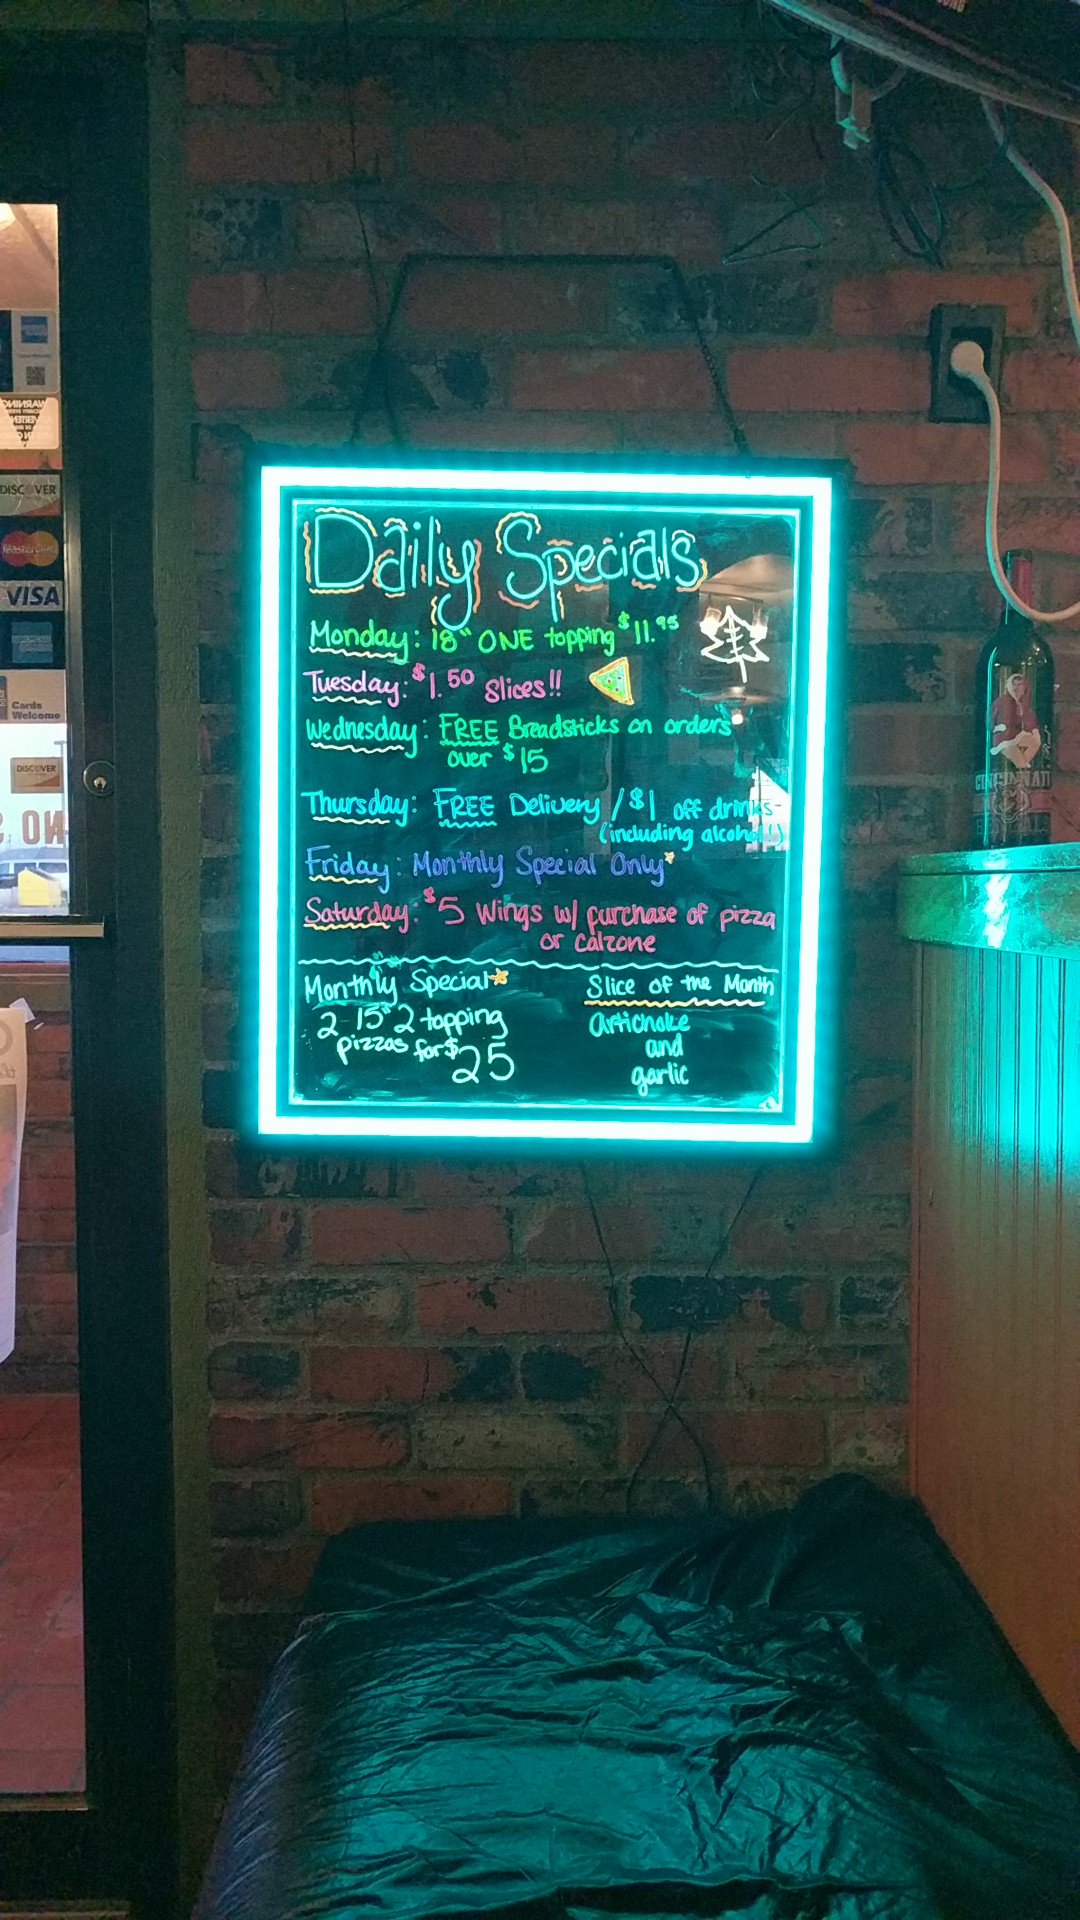 Daily Specials
Monday: 18" ONE topping $11.95
Tuesday: $1.50 Slices!!
Wednesday: FREE Breadsticks on orders
over $15
Thursday: FREE Delivery / $1 off drinks
(including alcohol!)
Friday: Monthly Special Only*
Saturday: $5 Wings w/ purchase of pizza
or calzone
Monthly Special*
2 15" 2 topping
pizzas for $25
Slice of the Month
artichoke
and
garlic
WARNING
DISCOVER
VISA
Cards
Welcome
DISCOVER
NO
CINCINNATI